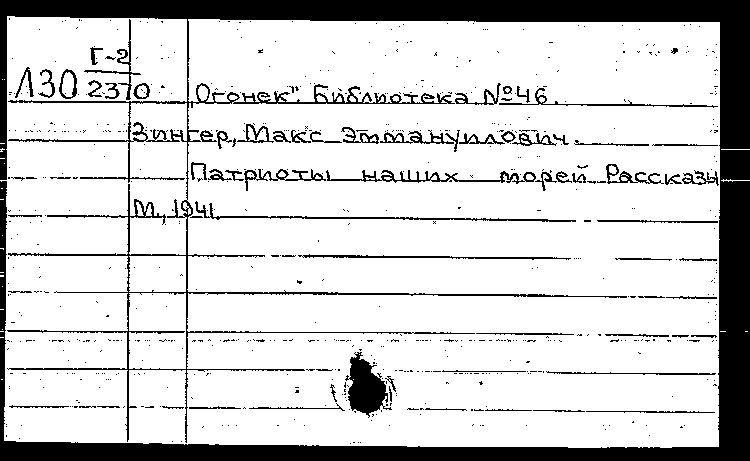 Г-2
Л30 2370 „Огонек". Библиотека №46.
Зингер, Макс Эммануилович.
Патриоты наших морей Рассказы
М., 1941.